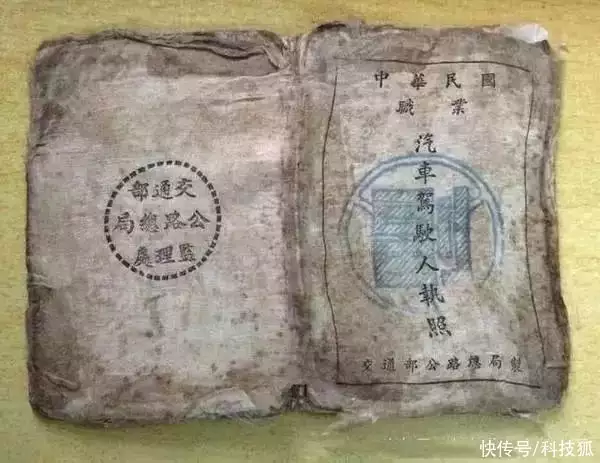 中華民國
職業
汽車駕駛人執照
交通部公路總局製
交通部
公路總局
監理處
快传号/科技狐